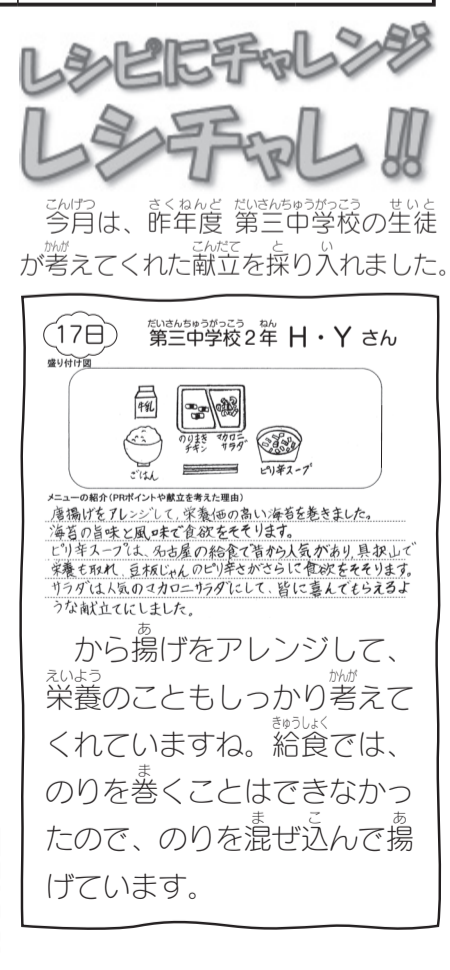 レシピにチャレンジ
レシチャレ!!
今月は、昨年度 第三中学校の生徒
が考えてくれた献立を採り入れました。
17日 第三中学校2年 H・Y さん
盛り付け図
牛乳
のりまき
チキン
マカロニ
サラダ
ごはん
ピリ辛スープ
メニューの紹介(PRポイントや献立を考えた理由)
唐揚げをアレンジして、栄養価の高い海苔を巻きました。
海苔の旨味と風味で食欲をそそります。
ピリ辛スープは、名古屋の給食で昔から人気があり、具沢山で
栄養も取れ、豆板じゃんのピリ辛さがさらに食欲をそそります。
サラダは人気のマカロニサラダにして、皆に喜んでもらえるよ
うな献立てにしました。
から揚げをアレンジして、
栄養のこともしっかり考えて
くれていますね。給食では、
のりを巻くことはできなかっ
たので、のりを混ぜ込んで揚
げています。